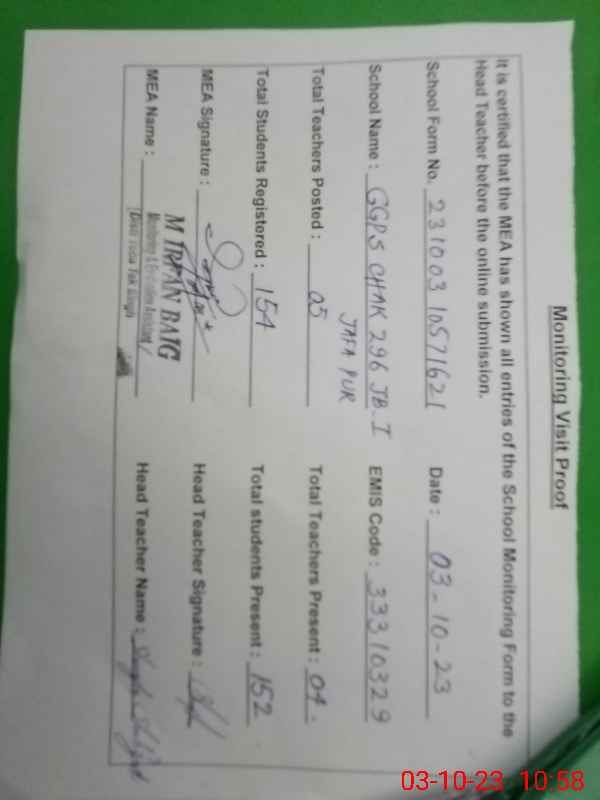 Monitoring Visit Proof
It is certified that the MEA has shown all entries of the School Monitoring Form to the
Head Teacher before the online submission.
School Form No. 231003 10571621 Date : 03-10-23
School Name : GGPS CHAK 296 JB-I EMIS Code : 33310329
JAFA PUR
Total Teachers Posted : 05 Total Teachers Present : 04.
Total Students Registered : 154 Total students Present : 152
MEA Signature : Head Teacher Signature :
M IRFAN BAIG
Monitoring & Evaluation Assistant
MEA Name : Distt Toba Tek Singh Head Teacher Name :
03-10-23 10:58